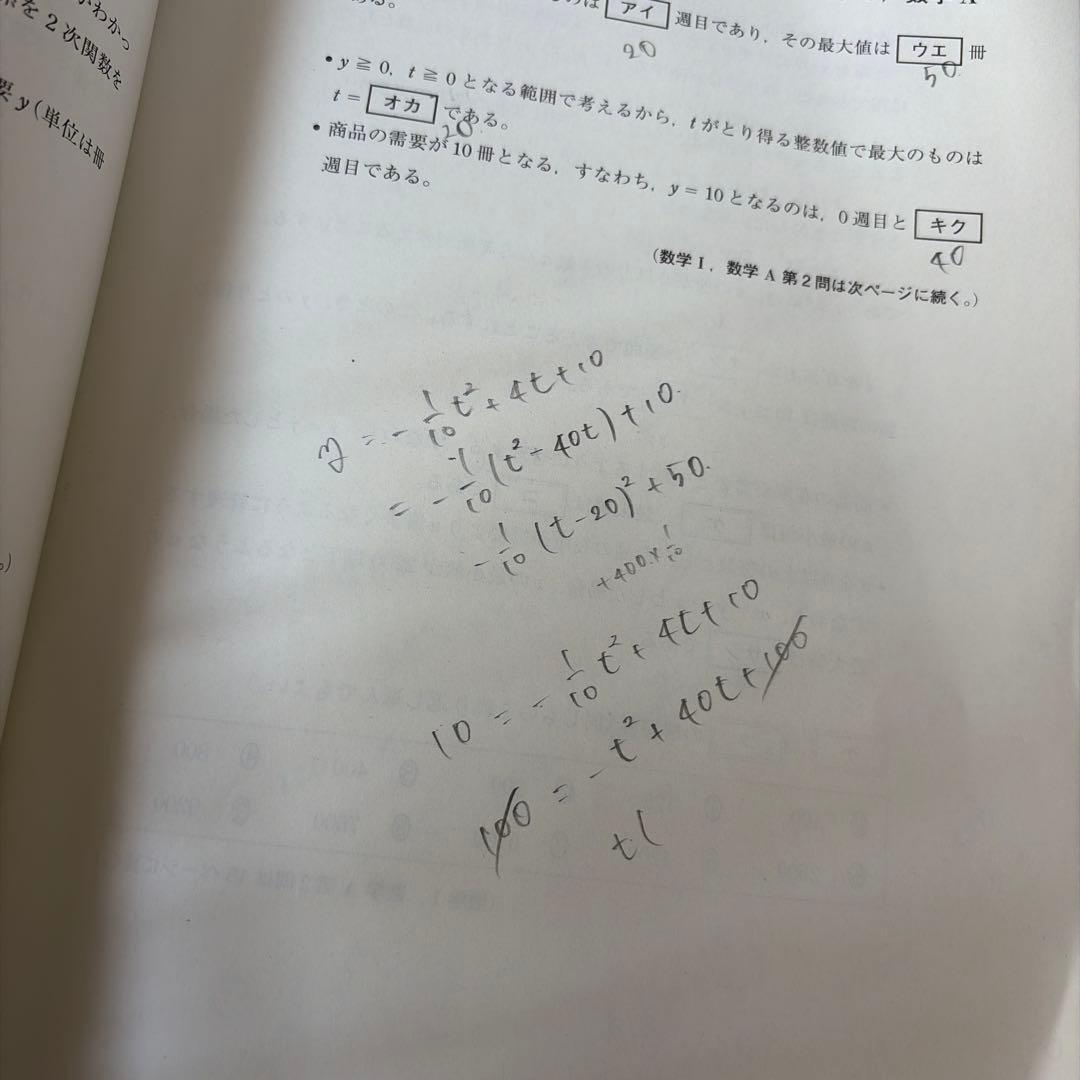 わかっ
を2次関数を
要 y(単位は冊
アイ 週目であり,その最大値は ウエ 冊
20
50
• y ≧ 0, t ≧ 0 となる範囲で考えるから,t がとり得る整数値で最大のものは
t = オカ である。
20
• 商品の需要が10冊となる,すなわち,y = 10 となるのは,0週目と キク
週目である。
40
(数学 I,数学 A 第2問は次ページに続く。)
y = -1/10 t² + 4t + 10
= -1/10 (t² - 40t) + 10.
-1/10 (t - 20)² + 50.
+400×1/10
10 = -1/10 t² + 4t + 10
100 = -t² + 40t + 100
t(